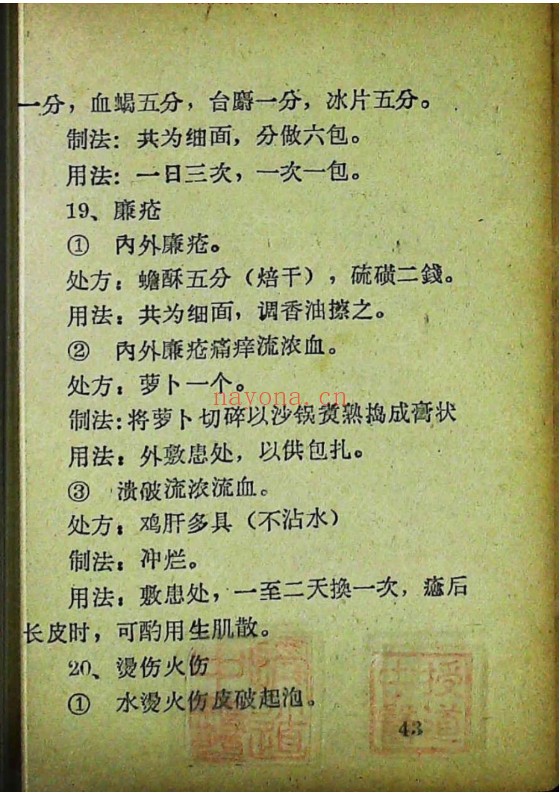 一分，血蝎五分，台麝一分，冰片五分。
制法：共为细面，分做六包。
用法：一日三次，一次一包。
19、廉疮
① 内外廉疮。
处方：蟾酥五分（焙干），硫磺二錢。
用法：共为细面，调香油擦之。
② 内外廉疮痛痒流浓血。
处方：萝卜一个。
nayona.cn
制法：将萝卜切碎以沙锅煑熟捣成膏状
用法：外敷患处，以供包扎。
③ 溃破流浓流血。
处方：鸡肝多具（不沾水）
制法：冲烂。
用法：敷患处，一至二天換一次，癒后
长皮时，可酌用生肌散。
20、燙伤火伤
① 水燙火伤皮破起泡。
43